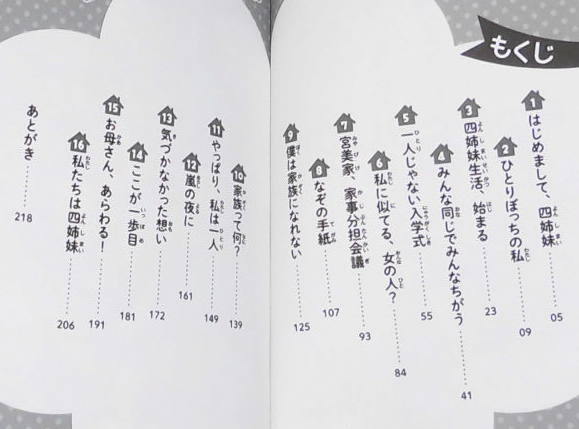 もくじ
1 はじめまして、四姉妹 05
2 ひとりぼっちの私 09
3 四姉妹生活、始まる 23
4 みんな同じでみんなちがう 41
5 一人じゃない入学式 55
6 私に似てる、女の人? 84
7 宮美家、家事分担会議 93
8 なぞの手紙 107
9 僕は家族になれない 125
10 家族って何? 139
11 やっぱり、私は一人 149
12 嵐の夜に 161
13 気づかなかった想い 172
14 ここが一歩目 181
15 お母さん、あらわる! 191
16 私たちは四姉妹 206
あとがき 218